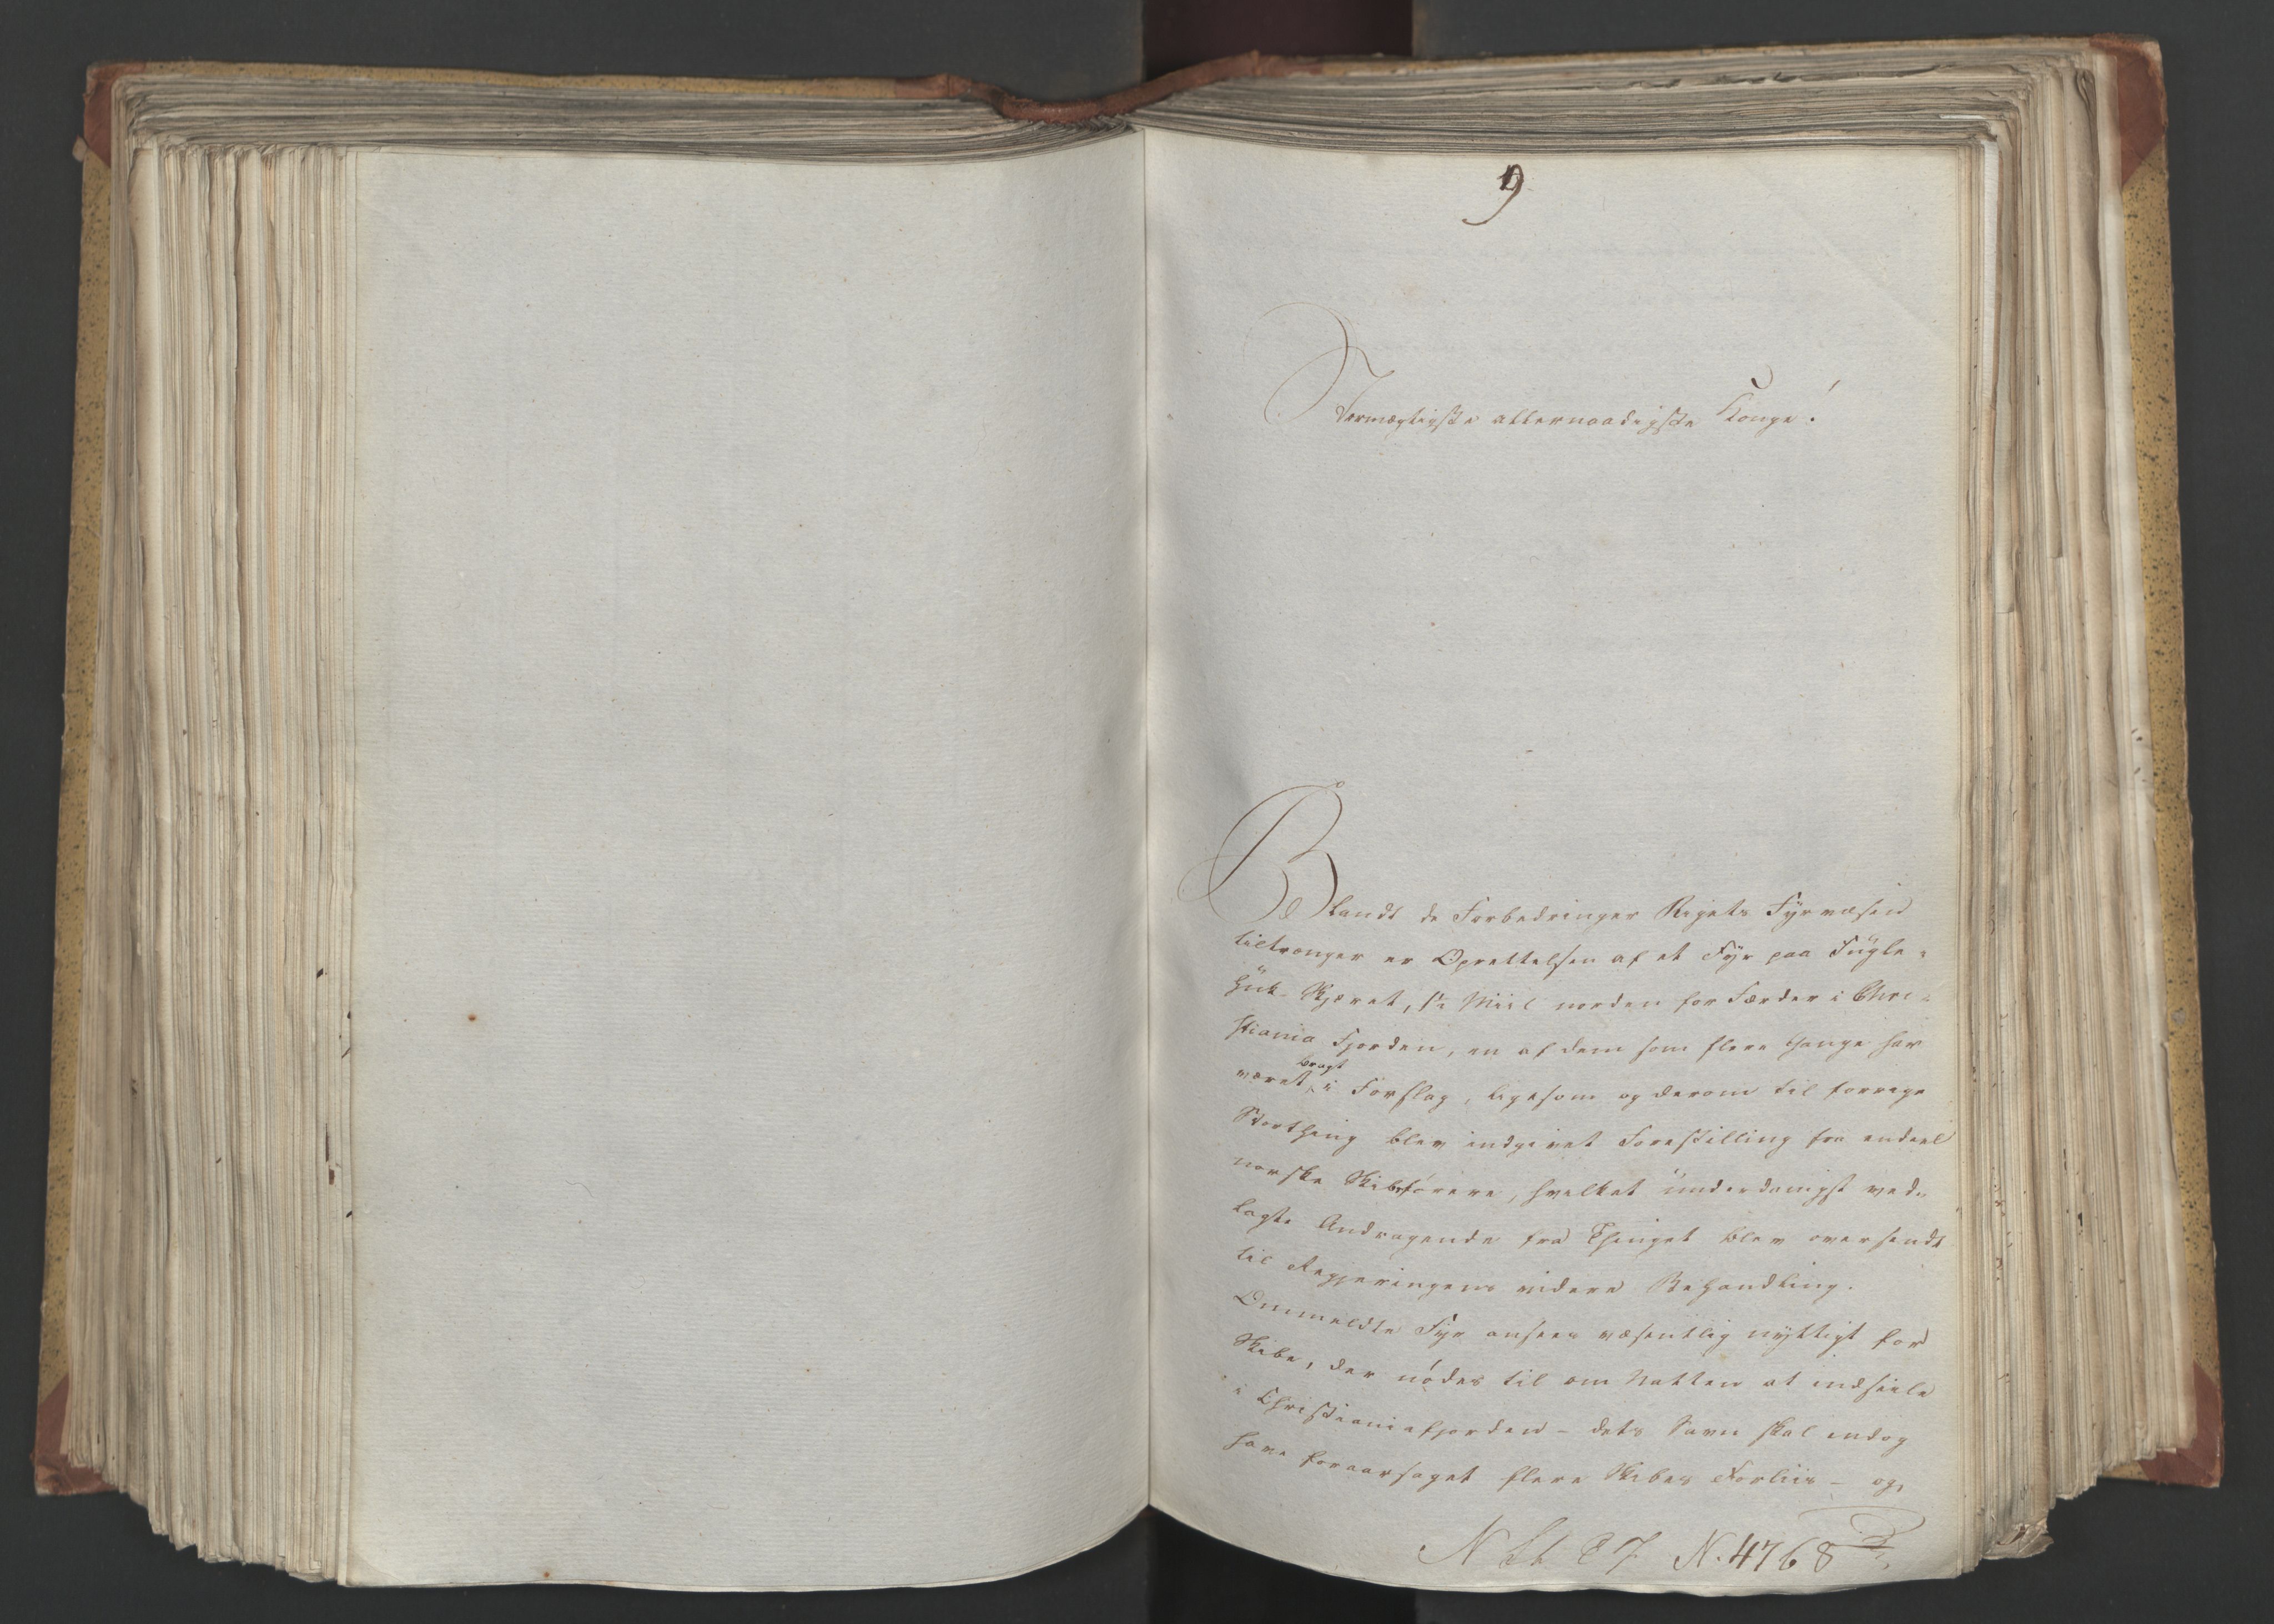 9
Stormægtigste allernaadigste Konge!
Blandt de Forbedringer Rigets Fyrvæsen
tiltrænger er Oprettelsen af et Fyr paa Fugle=
huk-Skjæret, 1½ Miil norden for Færder i Chri=
stiania Fjorden, en af dem som flere Gange har
været bragt i Forslag, ligesom og derom til forrige
Storthing blev indgivet Forestilling fra endeel
norske Skibsførere, hvilket underdanigst ved=
lagte Andragende fra Thinget blev oversendt
til Regjeringens videre Behandling.
Ommeldte Fyr ansees væsentlig nyttigt for
Skibe, der nødes til om Natten at indseile
i Christianiafjorden - dets Savn skal endog
have foraarsaget flere Skibes Forliis - og,
N. 4768